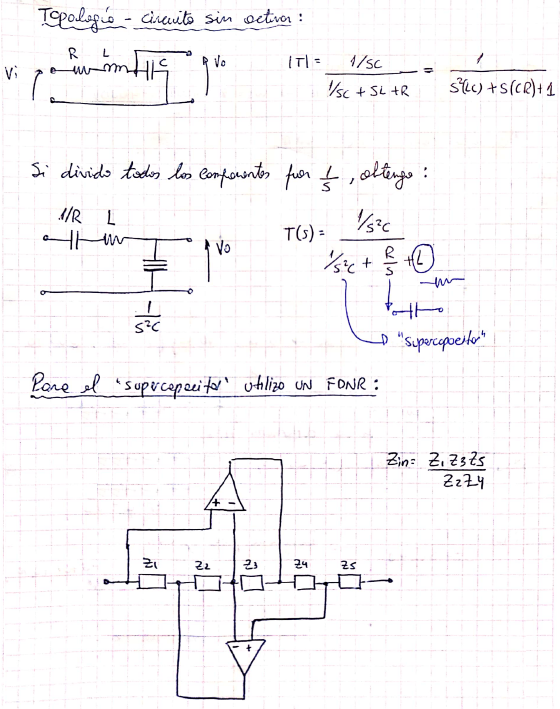 Topología - circuito sin activar:
R L C
Vi Vo
|T| = 1/SC / (1/SC + SL + R) = 1 / (S²(LC) + S(CR) + 1)
Si divido todos los componentes por 1/S, obtengo:
1/R L
Vo
1/S²C
T(s) = 1/S²C / (1/S²C + R/S + L)
"Supercapacitor"
Para el "supercapacitor" utilizo UN FDNR:
Zin = Z1 Z3 Z5 / Z2 Z4
+ -
Z1 Z2 Z3 Z4 Z5
- +